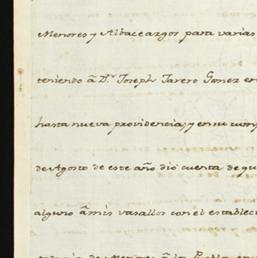 Menores y Albaceazgos para varias
teniendo â Dⁿ Joseph Tavero Gomez en
hasta nueva providencia; y en su cump
de Agosto de este año dió cuenta de que
alguno â mis vasallos con el establec
â la